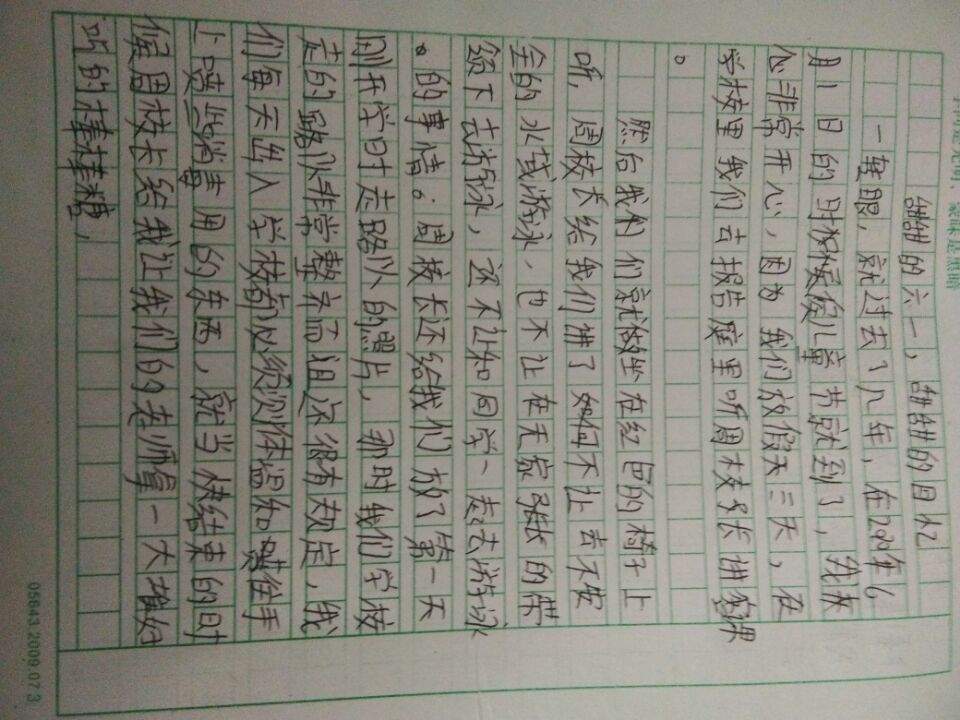 甜甜的六一,甜甜的回忆
一转眼,就过去了几年,在2020年6
月1日的时候儿童节就到了,我
心非常开心,因为我们放假三天,在
学校里我们去报告庭里听周校长讲课
。
然后我们就做坐在红色的椅子上
听,周校长给我们讲了如何不让去不安
全的水域游泳,也不让在无家张的带
领下去游泳,还不让和同学一起去游泳
。的事情。周校长还给我们放了第一天
刚开学时走路以的照片,那时我们学校
走的路队非常整齐而且还很有规定,我
们每天出入学校都必须测体温和喷往手
上喷些消毒用的东西,就当快结束的时
候周校长给我让我们的老师拿一大堆好
巧的棒棒糖,
05643.2009.07.3